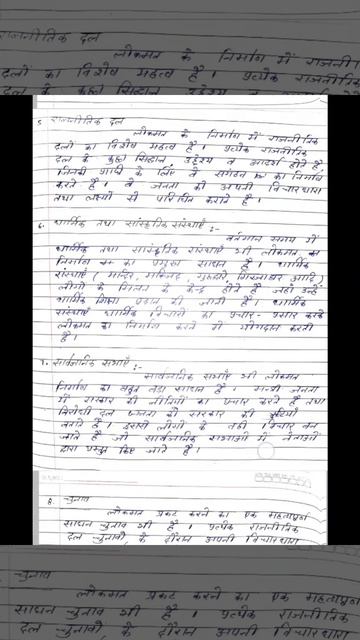 राजनीतिक दल
लोकमत के निर्माण में राजनी
दलों का विशेष महत्व है । प्रत्येक राजनीतिक
दल के कुछ सिद्धान्त उद्देश्य व
5. राजनीतिक दल
लोकमत के निर्माण में राजनीतिक
दलों का विशेष महत्व है । प्रत्येक राजनीतिक
दल के कुछ सिद्धान्त, उद्देश्य व आदर्श होते हैं
जिनकी प्राप्ति के लिए वे संगठन का निर्माण
करते हैं । वे जनता को अपनी विचारधारा
तथा लक्ष्यों से परिचित कराते हैं ।
6. धार्मिक तथा सांस्कृतिक संस्थाएँ :-
वर्तमान समय में
धार्मिक तथा सांस्कृतिक संस्थाएँ भी लोकमत का
निर्माण का प्रमुख साधन हैं । धार्मिक
संस्थाएँ ( मन्दिर, मस्जिद, गुरुद्वारे गिरजाघर आदि )
लोगों के मिलन के केन्द्र होते हैं जहाँ उन्हें
धार्मिक शिक्षा प्रदान की जाती है । धार्मिक
संस्थाएँ धार्मिक विचारों का प्रचार - प्रसार करके
लोकमत का निर्माण करने में योगदान करती
हैं ।
7. सार्वजनिक सभाएँ :-
सार्वजनिक सभाएँ भी लोकमत
निर्माण का बहुत बड़ा साधन हैं । मन्त्री जनता
में सरकार की नीतियों का प्रचार करते हैं तथा
विरोधी दल जनता को सरकार की त्रुटियाँ
बताते हैं । इससे लोगों के वही विचार बन
जाते हैं जो सार्वजनिक सभाओं में नेताओं
द्वारा प्रस्तुत किए जाते हैं ।
8. चुनाव
लोकमत प्रकट करने का एक महत्वपूर्ण
साधन चुनाव भी है । प्रत्येक राजनीतिक
दल चुनावों के दौरान अपनी विचारधारा
चुनाव
लोकमत प्रकट करने का एक महत्वपू
साधन चुनाव भी है । प्रत्येक राजनी
दल चुनावों के दौरान अपनी विचारधा